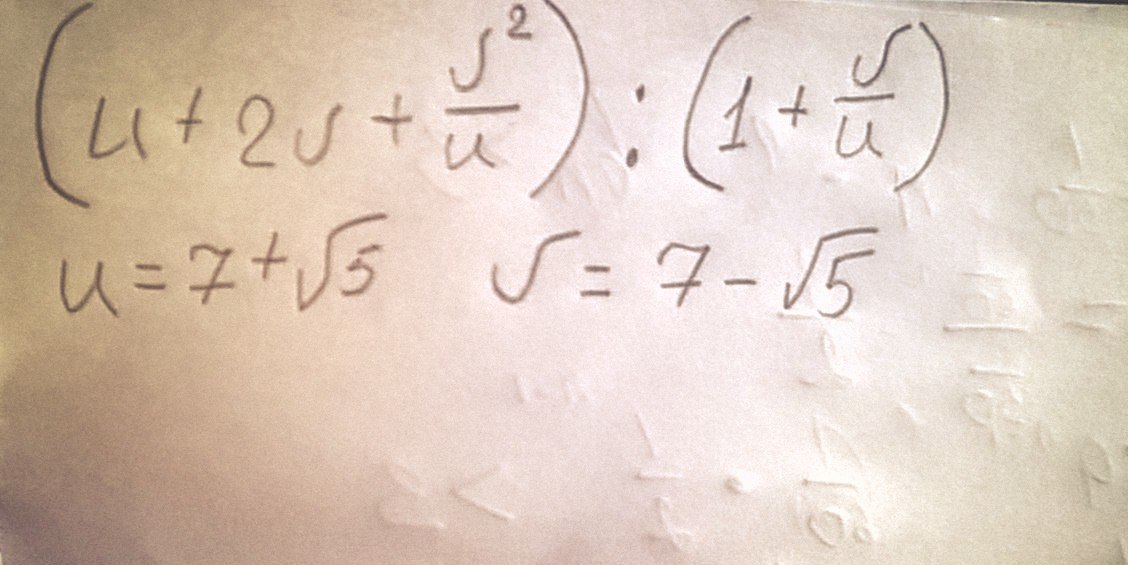 (u + 2v + v²/u) : (1 + v/u)
u = 7 + √5 v = 7 - √5